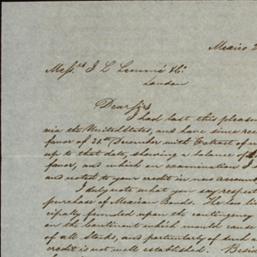 Mexico 2
Mess.rs J L Lemmé & Co.
London
Dear Sirs
I had last this pleasure
via the United States, and have since rec
favor of 28th December with Extract of
up to that date, shewing a balance of
favor, and which on examination I
and noted to your credit in new account
I duly note what you say respect
purchase of Mexican Bonds. He has
cipally founded upon the contingency
on the Continent which would cause
of all Stocks, and particularly of such
credit is not well established. Besid